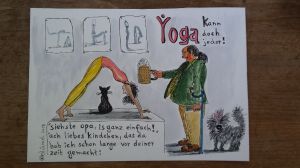 Yoga
Kann
doch
jeder!
Siehste opa, is ganz einfach!
ach liebes Kindchen, das da
hab ich schon lange vor deiner
zeit gemacht!